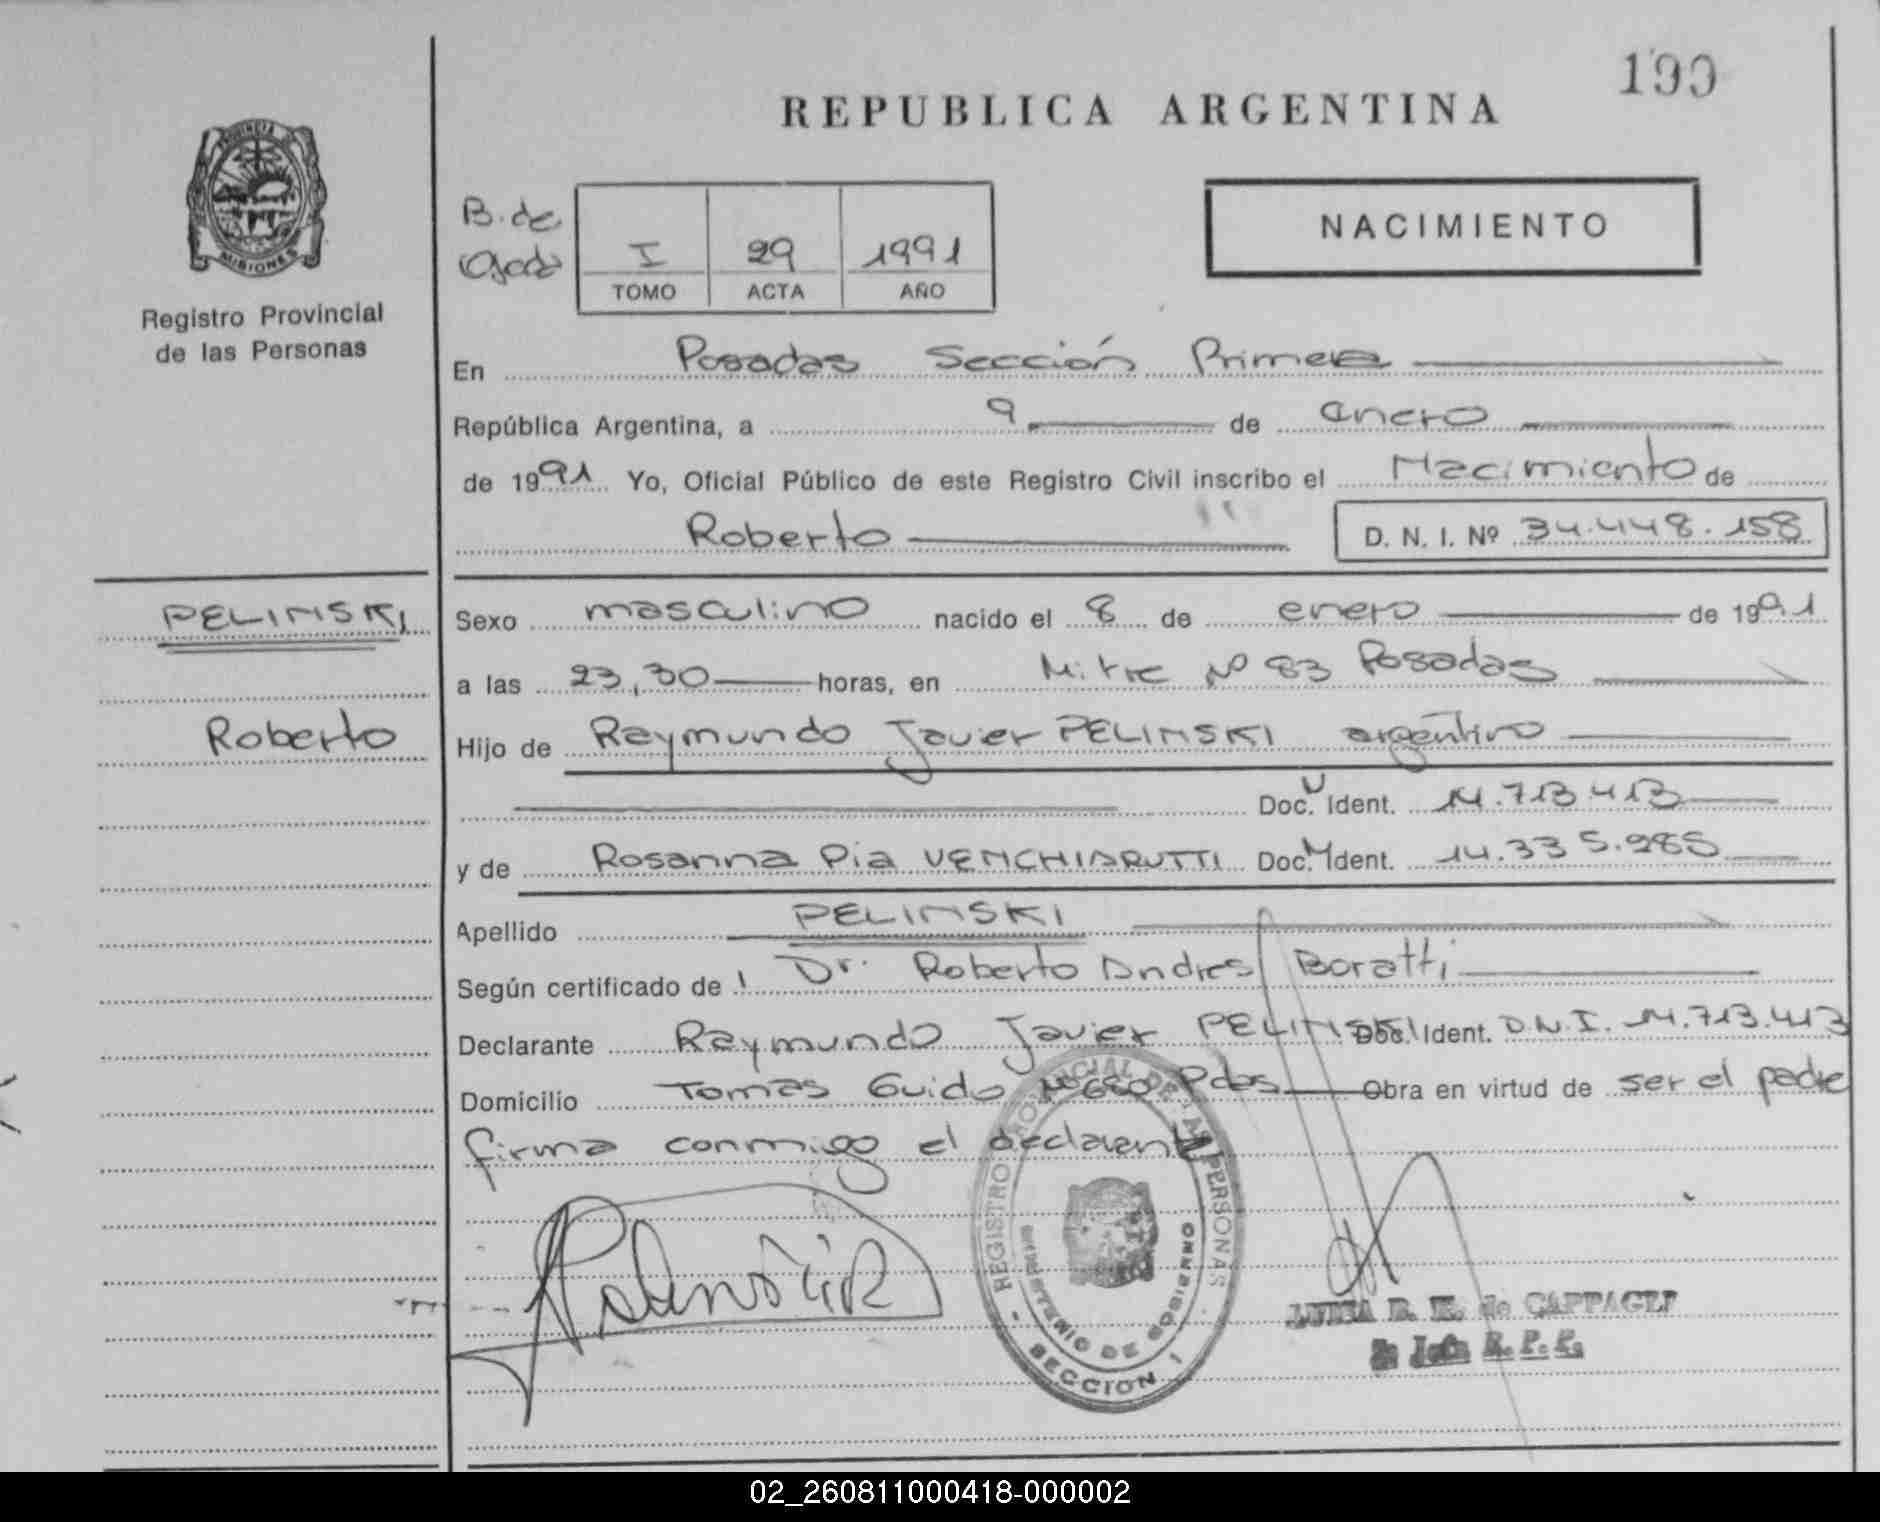 199
REPUBLICA ARGENTINA
PROVINCIA
MISIONES
Registro Provincial
de las Personas
B. de
I 29 1991
TOMO ACTA AÑO
NACIMIENTO
En Posadas Sección Primera
República Argentina, a 9 de enero
de 1991 Yo, Oficial Público de este Registro Civil inscribo el Nacimiento de
Roberto D. N. I. Nº 34.448.158
PELINSKI
Roberto
Sexo masculino nacido el 8 de enero de 1991
a las 23,30 horas, en Mitre Nº 83 Posadas
Hijo de Raymundo Javier PELINSKI argentino
Doc. Ident. 14.713.413
y de Rosanna Pia VENCHIARUTTI Doc. Ident. 14.335.985
Apellido PELINSKI
Según certificado de Dr. Roberto Andres Boratti
Declarante Raymundo Javier PELINSKI Doc. Ident. D.N.I. 14.713.413
Domicilio Tomas Guido Nº 680 Pdas Obra en virtud de ser el padre
firma conmigo el declarante
REGISTRO PROVINCIAL DE LAS PERSONAS
MINISTERIO DE GOBIERNO
SECCION I
de CAPPAGLI
R. P. P.
02_260811000418-000002